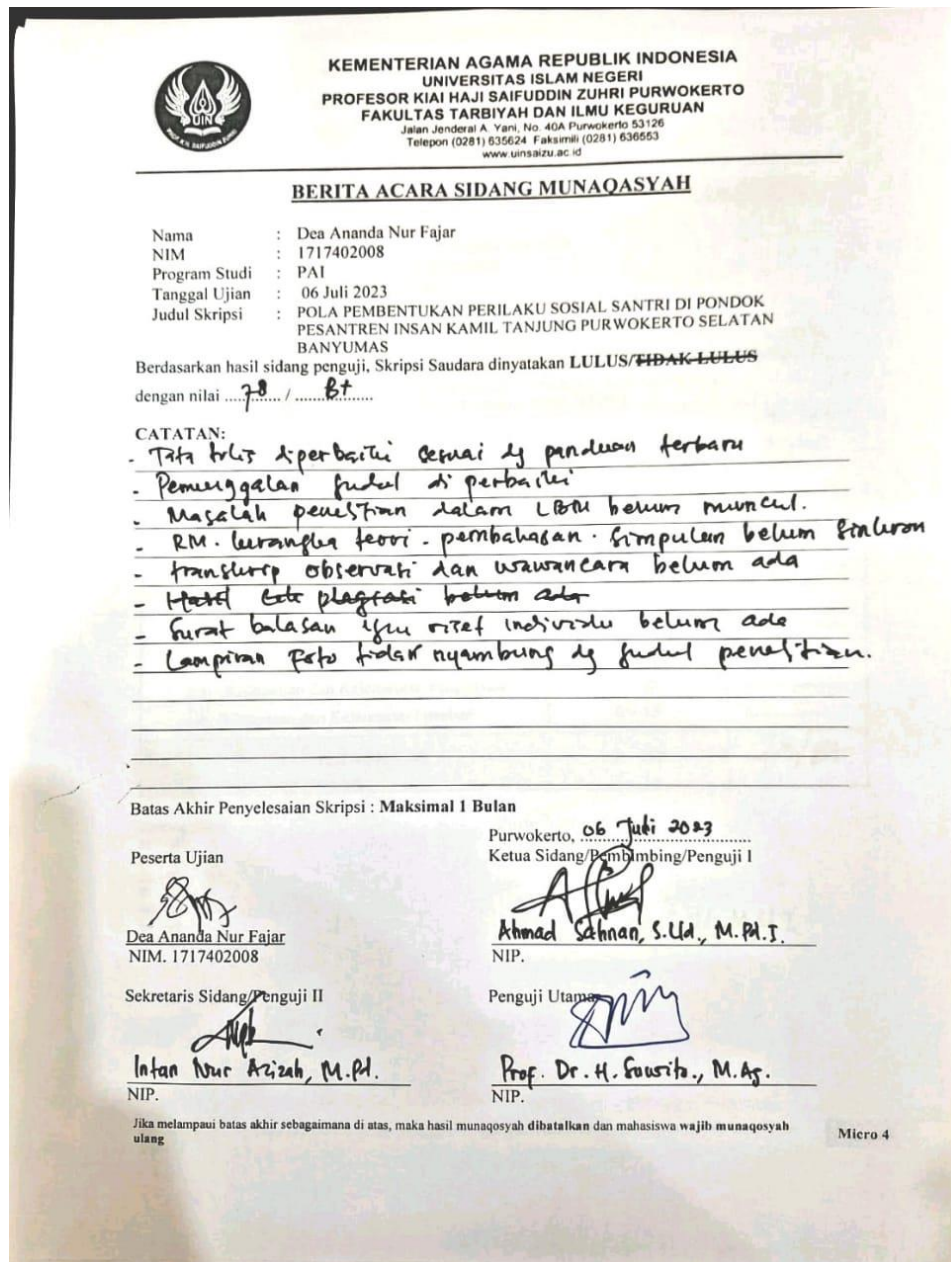 KEMENTERIAN AGAMA REPUBLIK INDONESIA
UNIVERSITAS ISLAM NEGERI
PROFESOR KIAI HAJI SAIFUDDIN ZUHRI PURWOKERTO
FAKULTAS TARBIYAH DAN ILMU KEGURUAN
Jalan Jenderal A. Yani, No. 40A Purwokerto 53126
Telepon (0281) 635624 Faksimili (0281) 636553
www.uinsaizu.ac.id
UIN
BERITA ACARA SIDANG MUNAQASYAH
Nama : Dea Ananda Nur Fajar
NIM : 1717402008
Program Studi : PAI
Tanggal Ujian : 06 Juli 2023
Judul Skripsi : POLA PEMBENTUKAN PERILAKU SOSIAL SANTRI DI PONDOK
PESANTREN INSAN KAMIL TANJUNG PURWOKERTO SELATAN
BANYUMAS
Berdasarkan hasil sidang penguji, Skripsi Saudara dinyatakan LULUS/TIDAK LULUS
dengan nilai ....78..... / .......B+.......
CATATAN:
- Tata tulis diperbaiki sesuai dg panduan terbaru
- Pemenggalan judul di perbaiki
- Masalah penelitian dalam LBM belum muncul.
- RM. kerangka teori - pembahasan - simpulan belum sinkron
- transkrip observasi dan wawancara belum ada
- Hasil cek plagiasi belum ada
- Surat balasan ijin riset individu belum ada
- Lampiran foto tidak nyambung dg judul penelitian.
Batas Akhir Penyelesaian Skripsi : Maksimal 1 Bulan
Purwokerto, 06 Juli 2023
Peserta Ujian
Ketua Sidang/Pembimbing/Penguji I
Dea Ananda Nur Fajar
NIM. 1717402008
Ahmad Sahnan, S.Ud., M.Pd.I.
NIP.
Sekretaris Sidang/Penguji II
Penguji Utama
Intan Nur Azizah, M.Pd.
NIP.
Prof. Dr. H. Suwito., M.Ag.
NIP.
Jika melampaui batas akhir sebagaimana di atas, maka hasil munaqosyah dibatalkan dan mahasiswa wajib munaqosyah
ulang
Micro 4